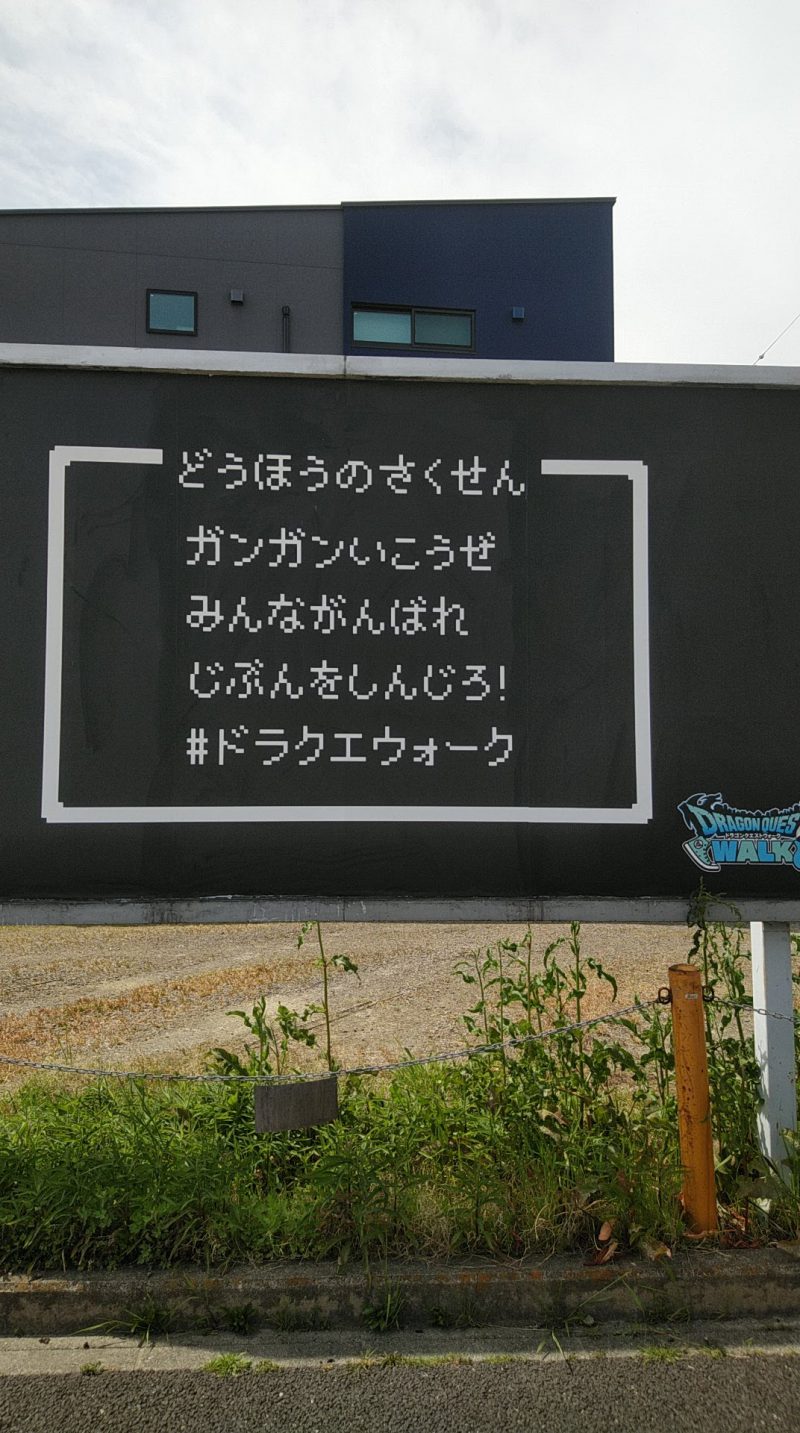 どうほうのさくせん
ガンガンいこうぜ
みんながんばれ
じぶんをしんじろ!
#ドラクエウォーク
DRAGON QUEST
ドラゴンクエストウォーク
WALK